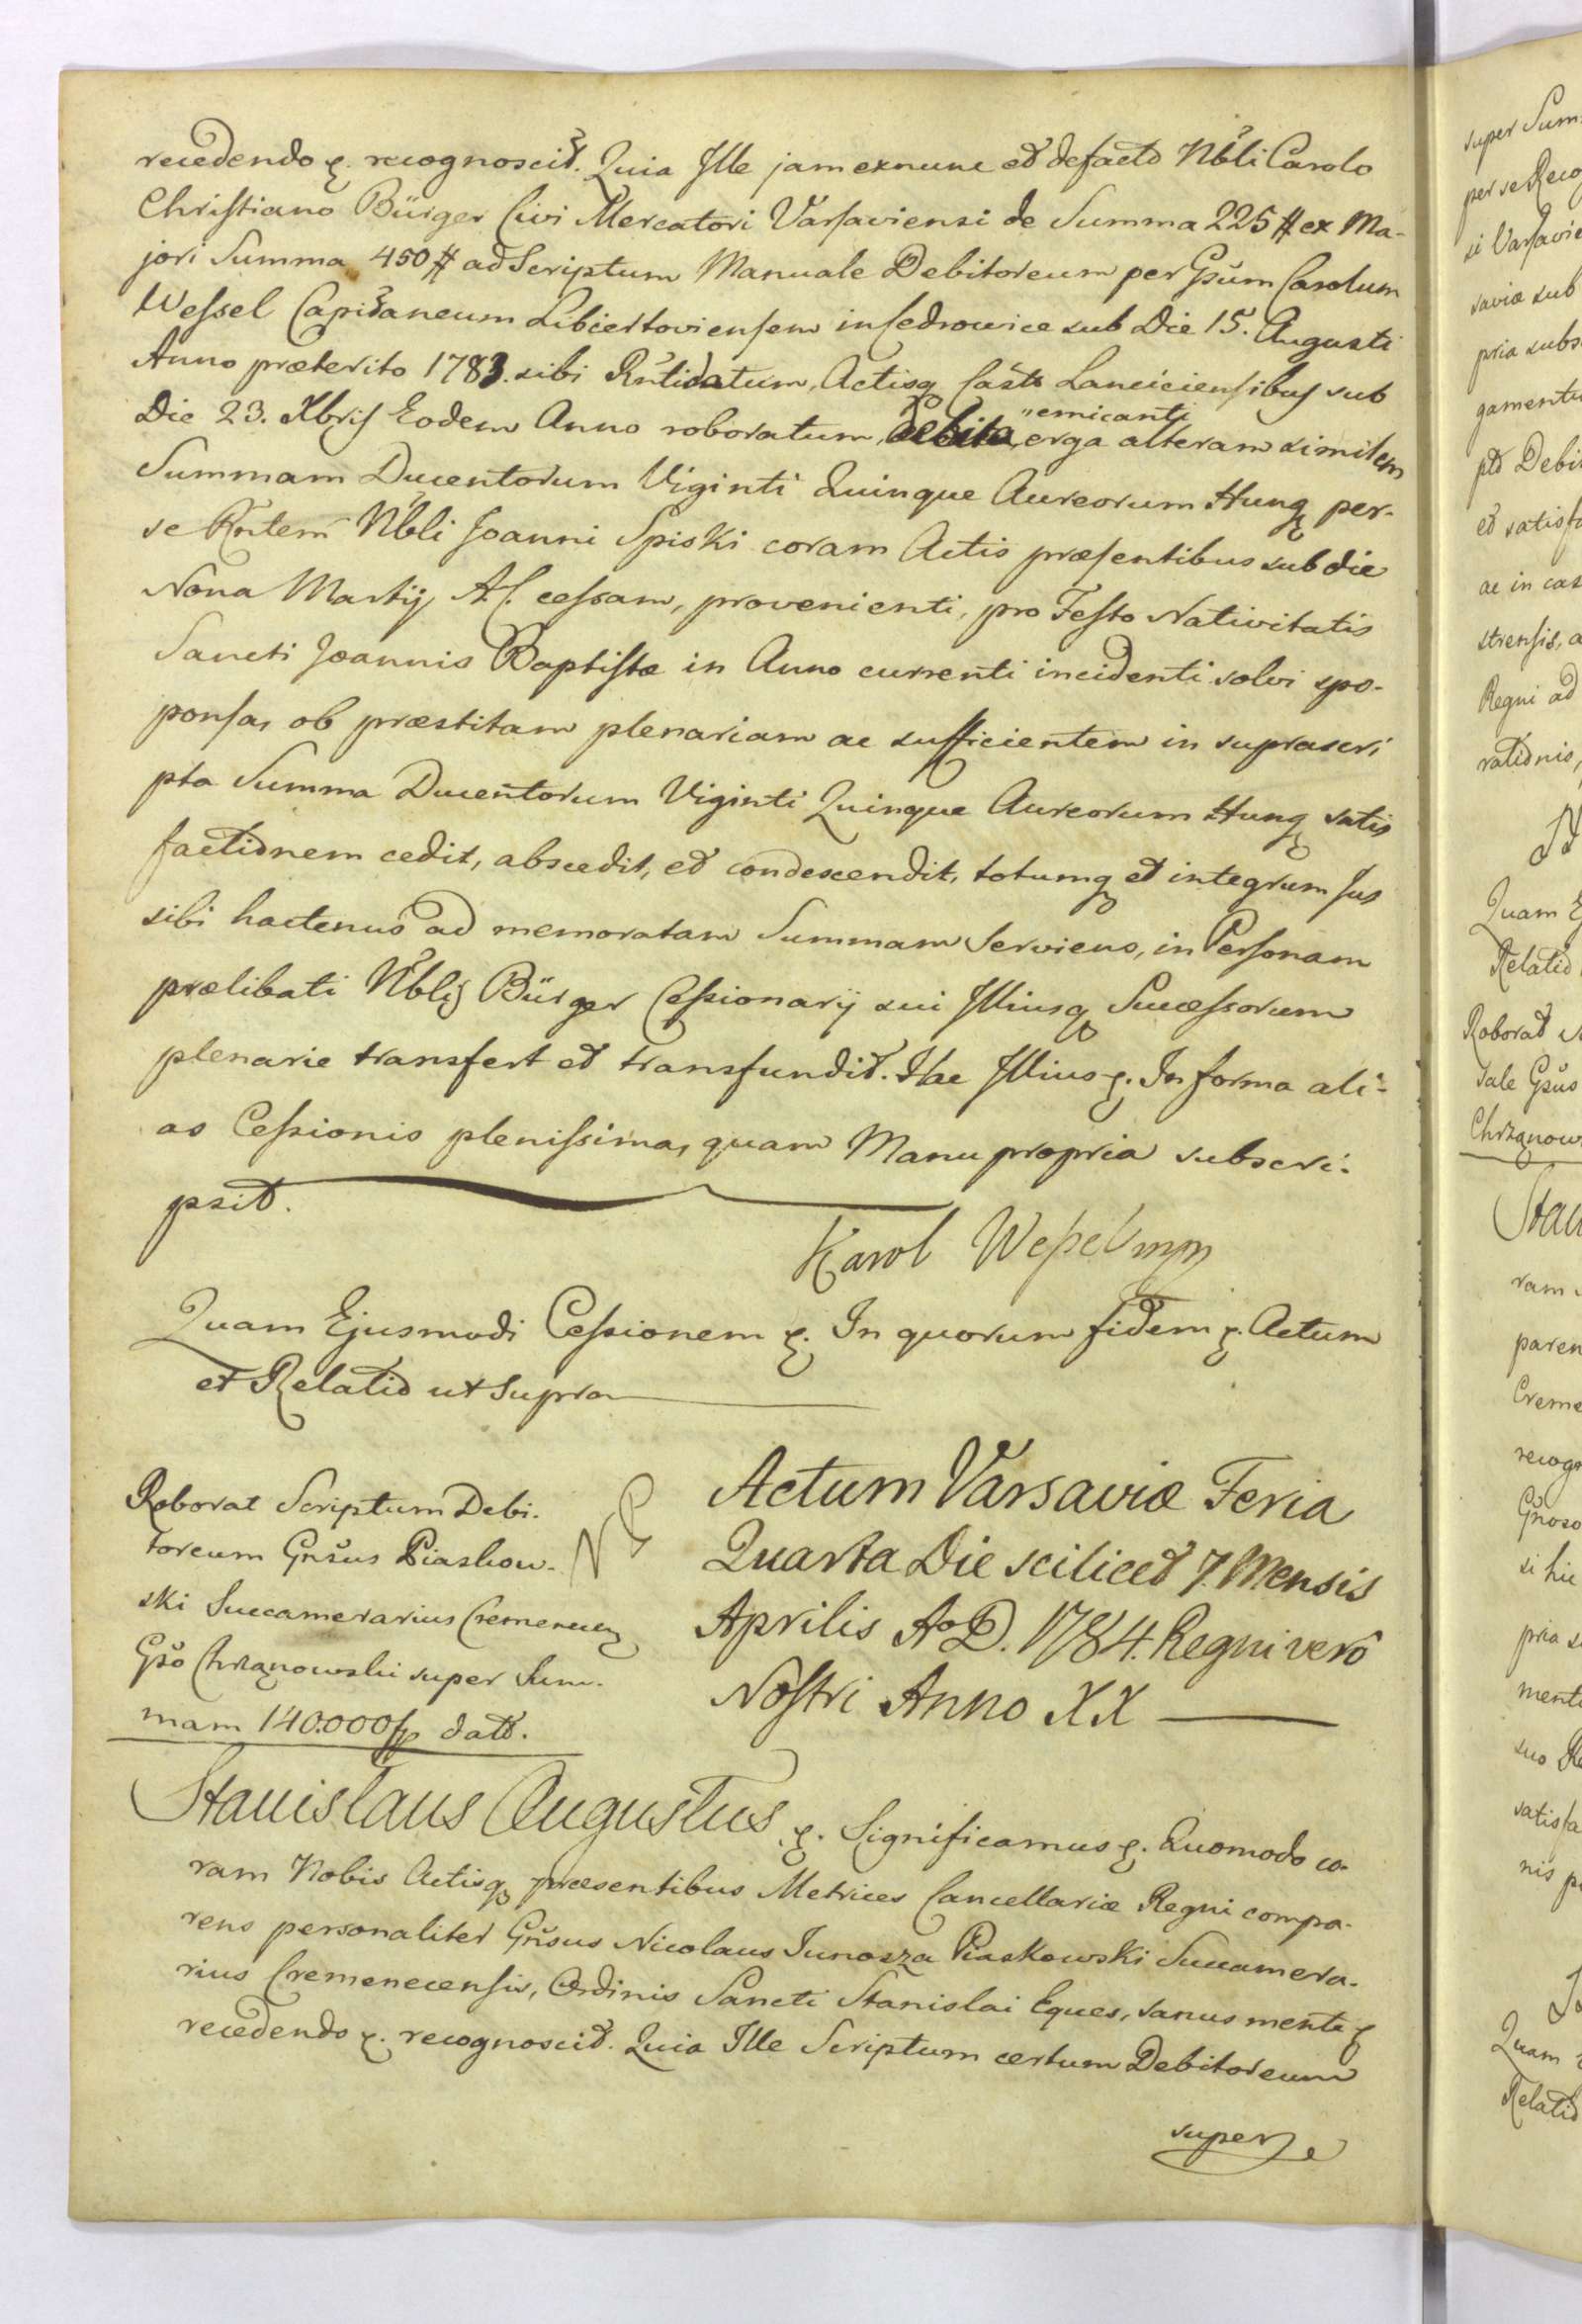 recedendo &. recognoscit. Quia Ille jam exnunc et defacto Nbli Carolo
Christiano Bürger Civi Mercatori Varsaviensi de Summa 225 # ex Ma-
jori Summa 450 # ad Scriptum Manuale Debitoreum per Gsum Carolum
Wessel Capitaneum in sub Die 15. Augusti
Anno præterito 1783. sibi Actisq Castr Lanciciensibus sub
Die 23. Xbris Eodem Anno roboratum, emicanti
erga alteram similem
Summam Ducentorum Viginti Quinque Aureorum Hung per-
se Rntem Nbli Joanni Spiski coram Actis præsentibus sub die
Nona Martij A. C. cessam, provenienti, pro Festo Nativitatis
Sancti Joannis Baptistæ in Anno currenti incidenti solvi spo-
ponsa, ob præstitam plenariam ac sufficientem in suprascri
pta Summa Ducentorum Viginti Quinque Aureorum Hung satis
factionem cedit, abscedit, et condescendit, totumq et integrum Jus
sibi hactenus ad memoratam Summam Serviens, in Personam
prælibati Nblis Bürger Cessionarij sui Illiusq Successorum
plenarie transfert et transfundit. Hac Illius &. In forma ali-
as Cessionis plenissima, quam Manu propria subscri-
psit.
Karol Wessel mp
Quam Ejusmodi Cessionem &. In quorum fidem &. Actum
et Relatio ut Supra
Roborat Scriptum Debi-
toreum Gnsus Piaskow-
ski Succamerarius Cremenecen
Gso Chrzanowski super Sum-
mam 140.000 fp datt.
Actum Varsaviæ Feria
Quarta Die scilicet 7. Mensis
Aprilis Ao D. 1784. Regni vero
Nostri Anno XX
Stanislaus Augustus &. Significamus &. Quomodo co-
ram Nobis Actisq præsentibus Metrices Cancellariæ Regni compa-
rens personaliter Gnsus Nicolaus Junosza Piaskowski Succamera-
rius Cremenecensis, Ordinis Sancti Stanislai Eques, sanus mente &
recedendo &. recognoscit. Quia Ille Scriptum certum Debitoreum
super
super Sum
per se Reco
si Varsavie
saviæ sub
pria subs
gamentu
ptd Debi
et satisfa
ac in cas
strensis, a
Regni ad
rationis,
Quam E
Relatio
Roborat
tale Gsus
Chrzanow
Stan
ram
paren
Creme
recogn
Gnoso
si hic
pria s
menti
suo Re
satisfa
nis p
Quam
Relatio